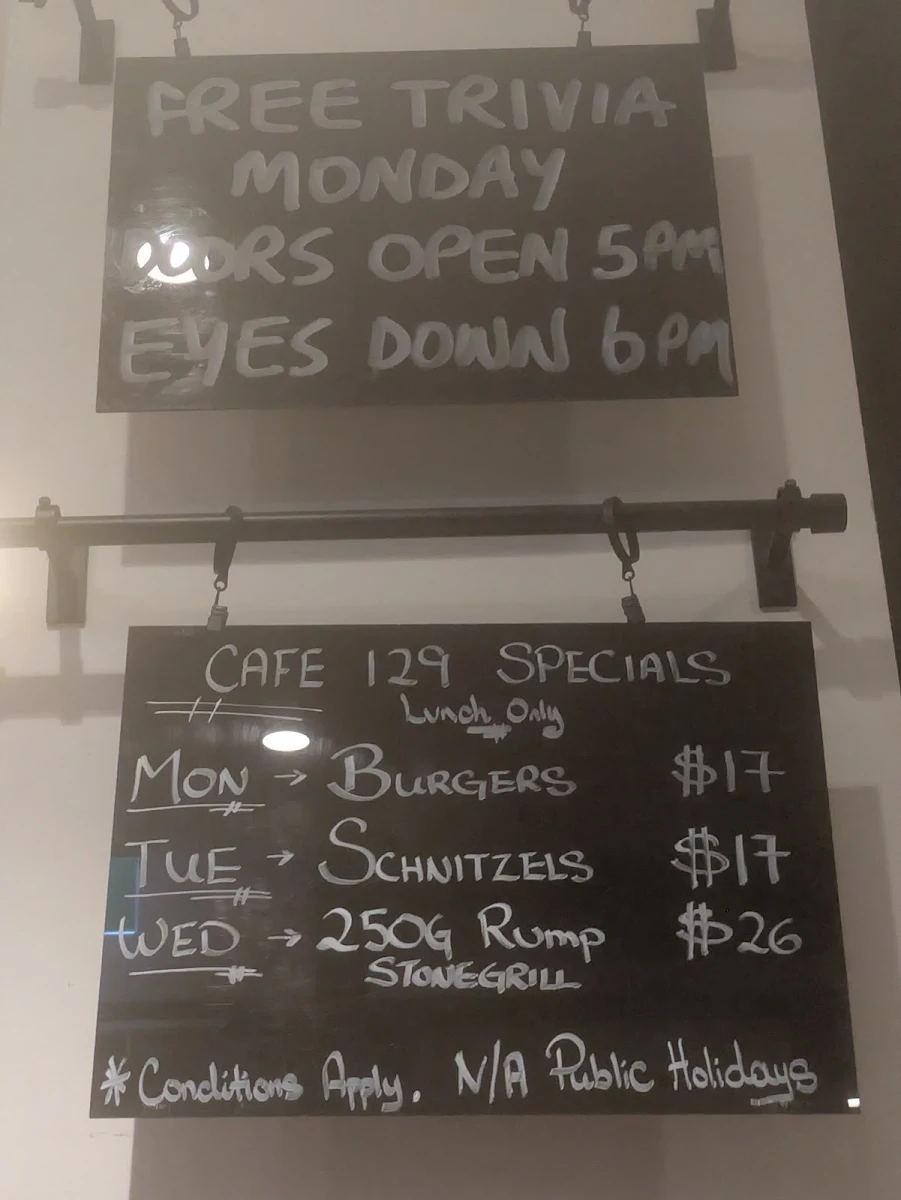 FREE TRIVIA
MONDAY
DOORS OPEN 5PM
EYES DOWN 6PM
CAFE 129 SPECIALS
Lunch Only
MON → BURGERS $17
TUE → SCHNITZELS $17
WED → 250G Rump $26
STONEGRILL
* Conditions Apply. N/A Public Holidays